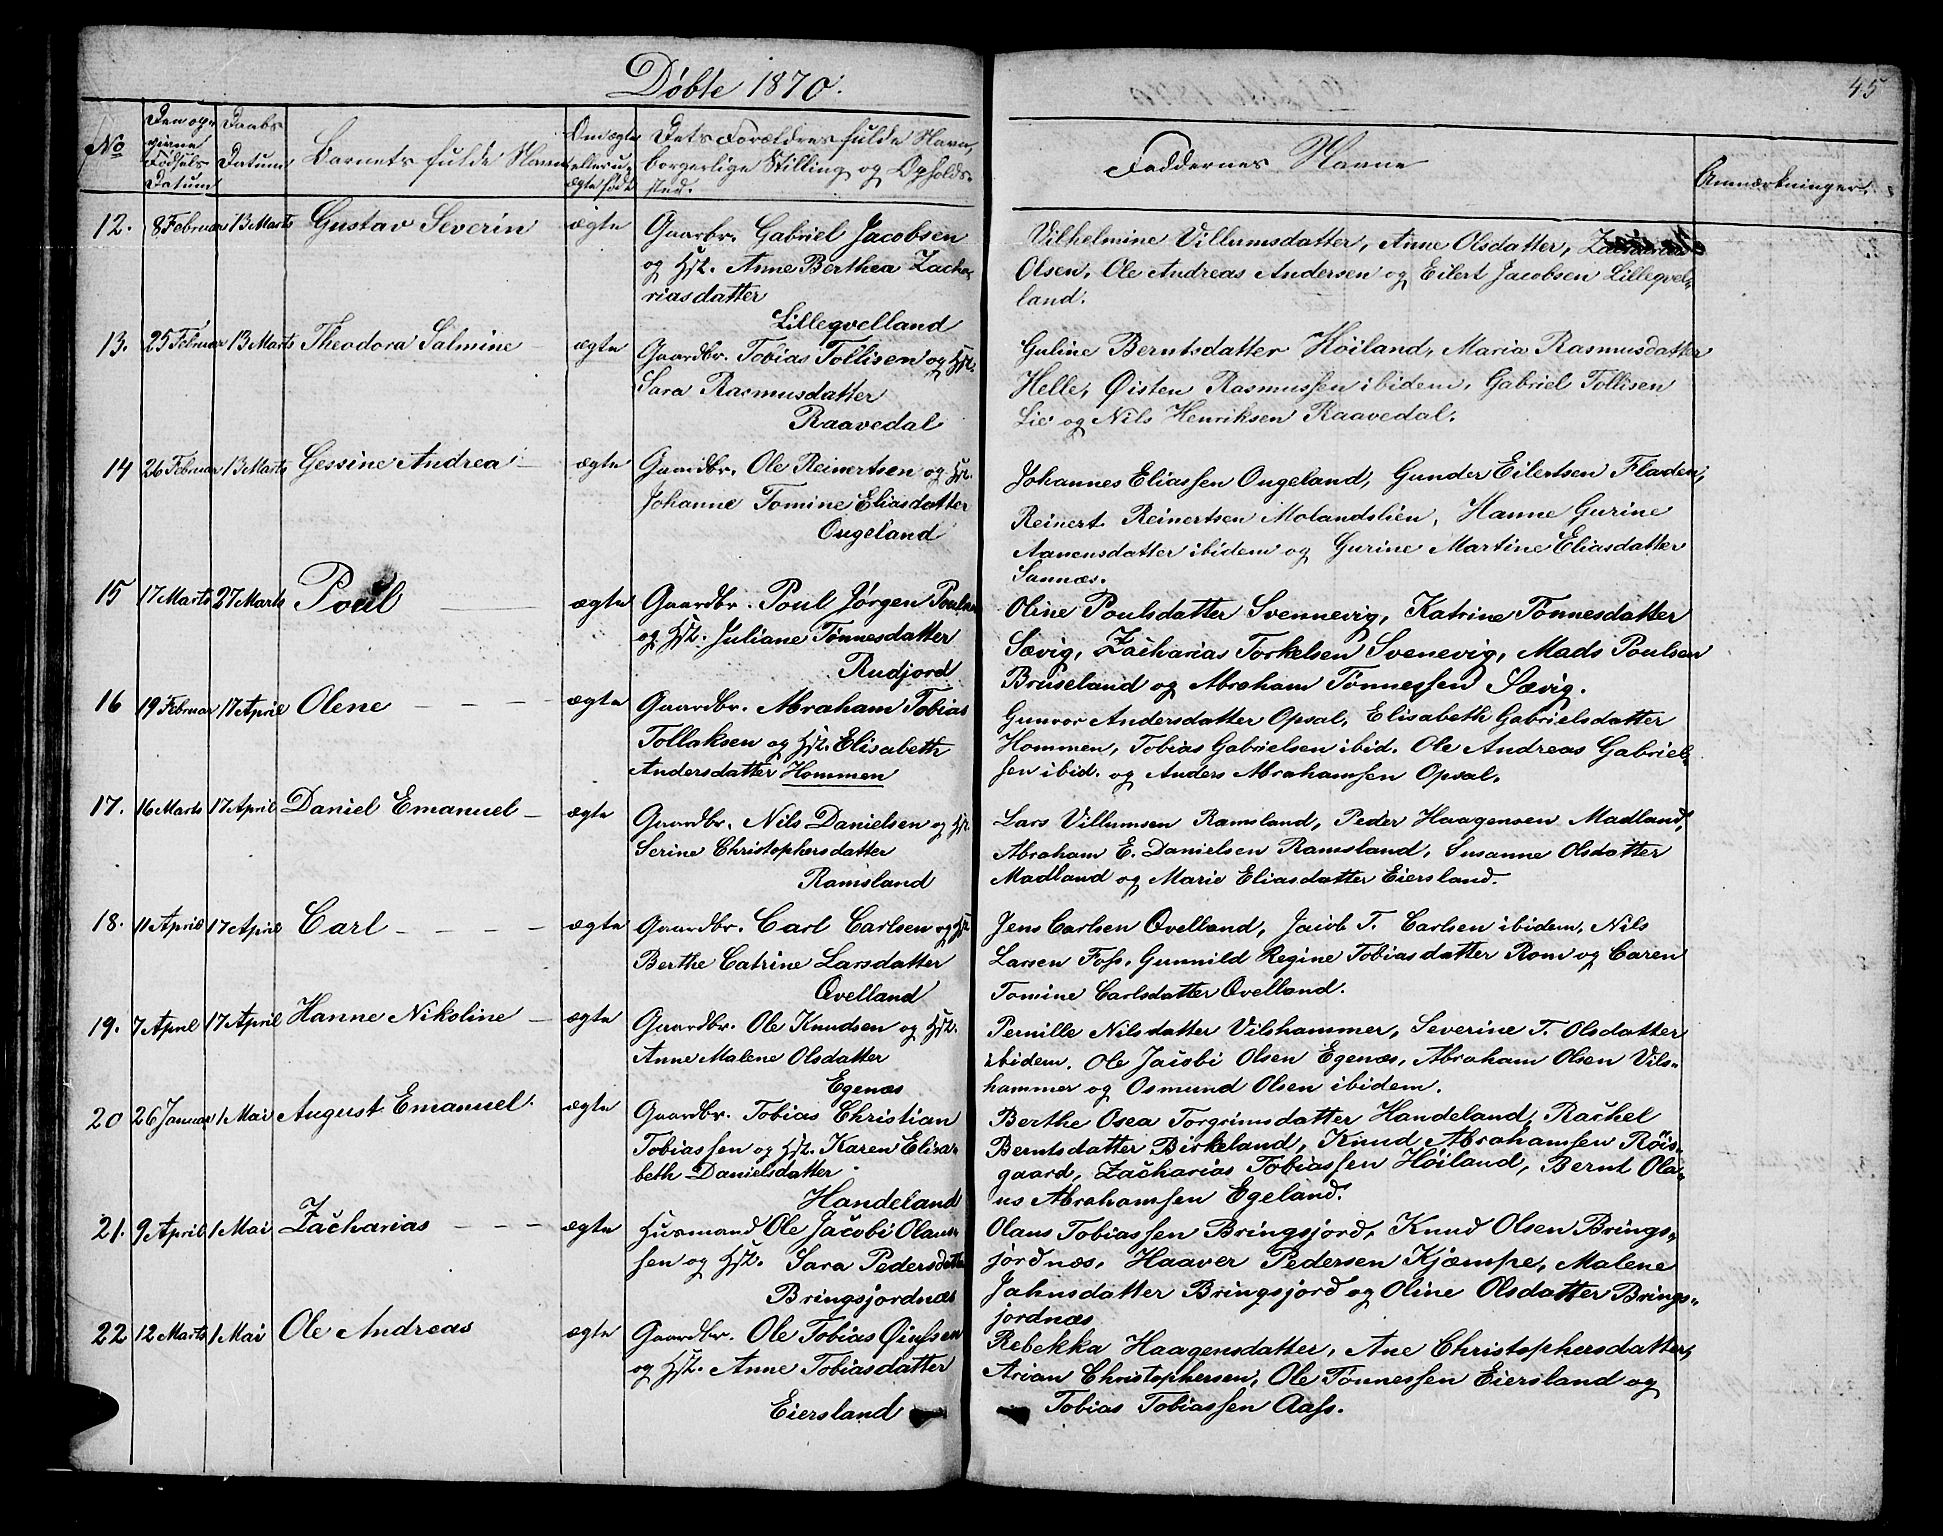 Døbte 1870.
45
No
Den op-
givne
Fødsels
Datum
Daabs
Datum
Barnets fulde Navn
Om ægte
eller u-
ægte født
Dets Forældres fulde Navn,
borgerlige Stilling og Opholds-
sted.
Faddernes Navne
Anmærkninger.
12. 8 Februar 13 Marts Gustav Severin ægte Gaardbr. Gabriel Jacobsen
og Hst. Anne Berthea Zacha-
riasdatter
Lillegvelland
Vilhelmine Villumsdatter, Anne Olsdatter, Zacharias
Olsen, Ole Andreas Andersen og Eilert Jacobsen Lillegvel-
land.
13. 25 Februar 13 Marts Theodora Salmine ægte Gaardbr. Tobias Tollisen og Hst.
Sara Rasmusdatter
Raavedal
Guline Berntsdatter Høiland, Maria Rasmusdatter
Helle, Øisten Rasmussen ibidem, Gabriel Tollisen
Lie og Nils Henriksen Raavedal.
14 26 Februar 13 Marts Gessine Andrea ægte Gaardbr. Ole Reinertsen og Hst.
Johanne Tomine Eliasdatter
Ougeland
Johannes Eliassen Ougeland, Gunder Eilertsen Fladen,
Reinert Reinertsen Molandslien, Hanne Gurine
Aanensdatter ibidem og Gurine Martine Eliasdatter
Sannæs.
15 17 Marts 27 Marts Poul ægte Gaardbr. Poul Jørgen Poulsen
og Hst. Juliane Tønnesdatter
Rudjord
Oline Poulsdatter Svennevig, Katrine Tønnesdatter
Sævig, Zacharias Torkelsen Svenevig, Mads Poulsen
Bruseland og Abraham Tønnessen Sævig.
16 19 Februar 17 April Olene ægte Gaardbr. Abraham Tobias
Tollaksen og Hst. Elisabeth
Andersdatter Hommen
Gunvor Andersdatter Opsal, Elisabeth Gabrielsdatter
Hommen, Tobias Gabrielsen ibid. Ole Andreas Gabriel-
sen ibid. og Anders Abrahamsen Opsal.
17. 16 Marts 17 April Daniel Emanuel ægte Gaardbr. Nils Danielsen og Hst
Serine Christophersdatter
Ramsland
Lars Villumsen Ramsland, Peder Haagensen Madland,
Abraham E. Danielsen Ramsland, Susanne Olsdatter
Madland og Marie Eliasdatter Eiersland.
18. 11 April 17 April Carl ægte Gaardbr. Carl Carlsen og Hst
Berthe Catrine Larsdatter
Qvelland
Jens Carlsen Qvelland, Jacob T. Carlsen ibidem, Nils
Larsen Foss, Gunnild Regine Tobiasdatter Rom og Caren
Tomine Carlsdatter Qvelland.
19. 7 April 17 April Hanne Nikoline ægte Gaardbr. Ole Knudsen og Hst.
Anne Malene Olsdatter
Egenæs
Pernille Nilsdatter Vilshammer, Severine T. Olsdatter
ibidem. Ole Jacobi Olsen Egenæs, Abraham Olsen Vils-
hammer og Osmund Olsen ibidem.
20 26 Januar 1 Mai August Emanuel ægte Gaardbr. Tobias Christian
Tobiassen og Hst. Karen Elisa-
beth Danielsdatter
Handeland
Berthe Osea Torgrimsdatter Handeland, Rachel
Berntsdatter Birkeland, Knud Abrahamsen Røis-
gaard, Zacharias Tobiassen Høiland, Bernt Ola-
us Abrahamsen Egeland.
21. 9 April 1 Mai Zacharias ægte Husmand Ole Jacobi Olaus-
sen og Hst. Sara Pedersdatter
Bringsjordnæs
Olaus Tobiassen Bringsjord, Knud Olsen Brings-
jordnæs, Haaver Pedersen Kjæmpe, Malene
Jahnsdatter Bringsjord og Oline Olsdatter Brings-
jordnæs
22 12 Marts 1 Mai Ole Andreas ægte Gaardbr. Ole Tobias
og Hst. Anne Tobiasdatter
Eiersland
Rebekka Haagensdatter, Ane Christophersdatter,
Arian Christophersen, Ole Tønnessen Eiersland og
Tobias Tobiassen Aass.